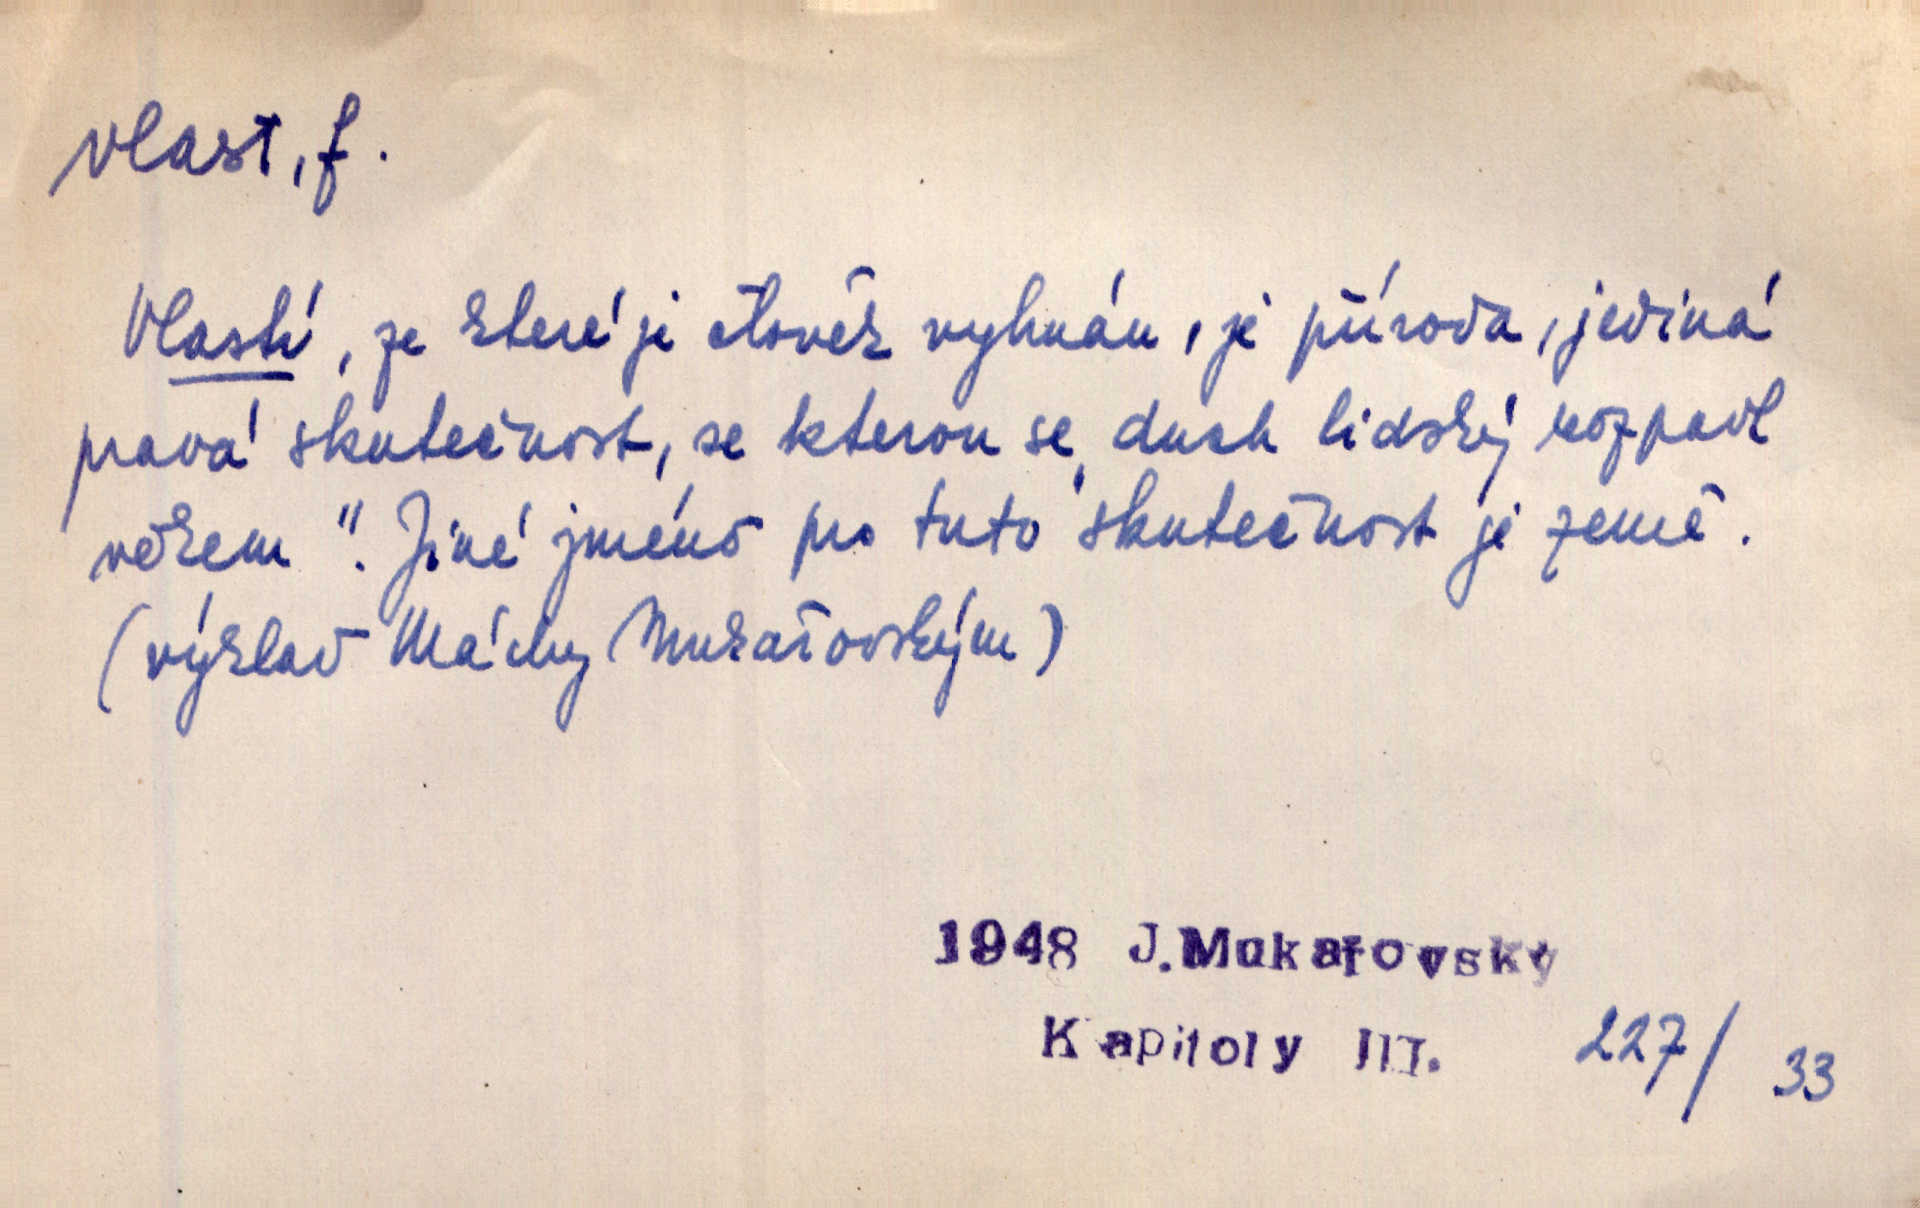 vlast, f.
Vlastí, ze které je člověk vyhnán, je příroda, jediná
pravá skutečnost, se kterou se „duch lidský rozpadl
věkem". Jiné jméno pro tuto skutečnost je země.
(výklad Máchy Mukařovským)
1948 J.Mukařovský
Kapitoly III. 227/33